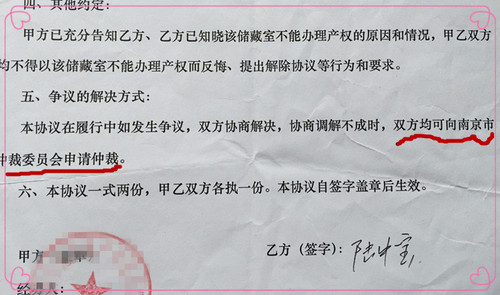 四、其他约定:
甲方已充分告知乙方、乙方已知晓该储藏室不能办理产权的原因和情况,甲乙双方
均不得以该储藏室不能办理产权而反悔、提出解除协议等行为和要求。
五、争议的解决方式:
本协议在履行中如发生争议,双方协商解决,协商调解不成时,双方均可向南京市
仲裁委员会申请仲裁。
六、本协议一式两份,甲乙双方各执一份。本协议自签字盖章后生效。
甲方
乙方(签字):陆中宝